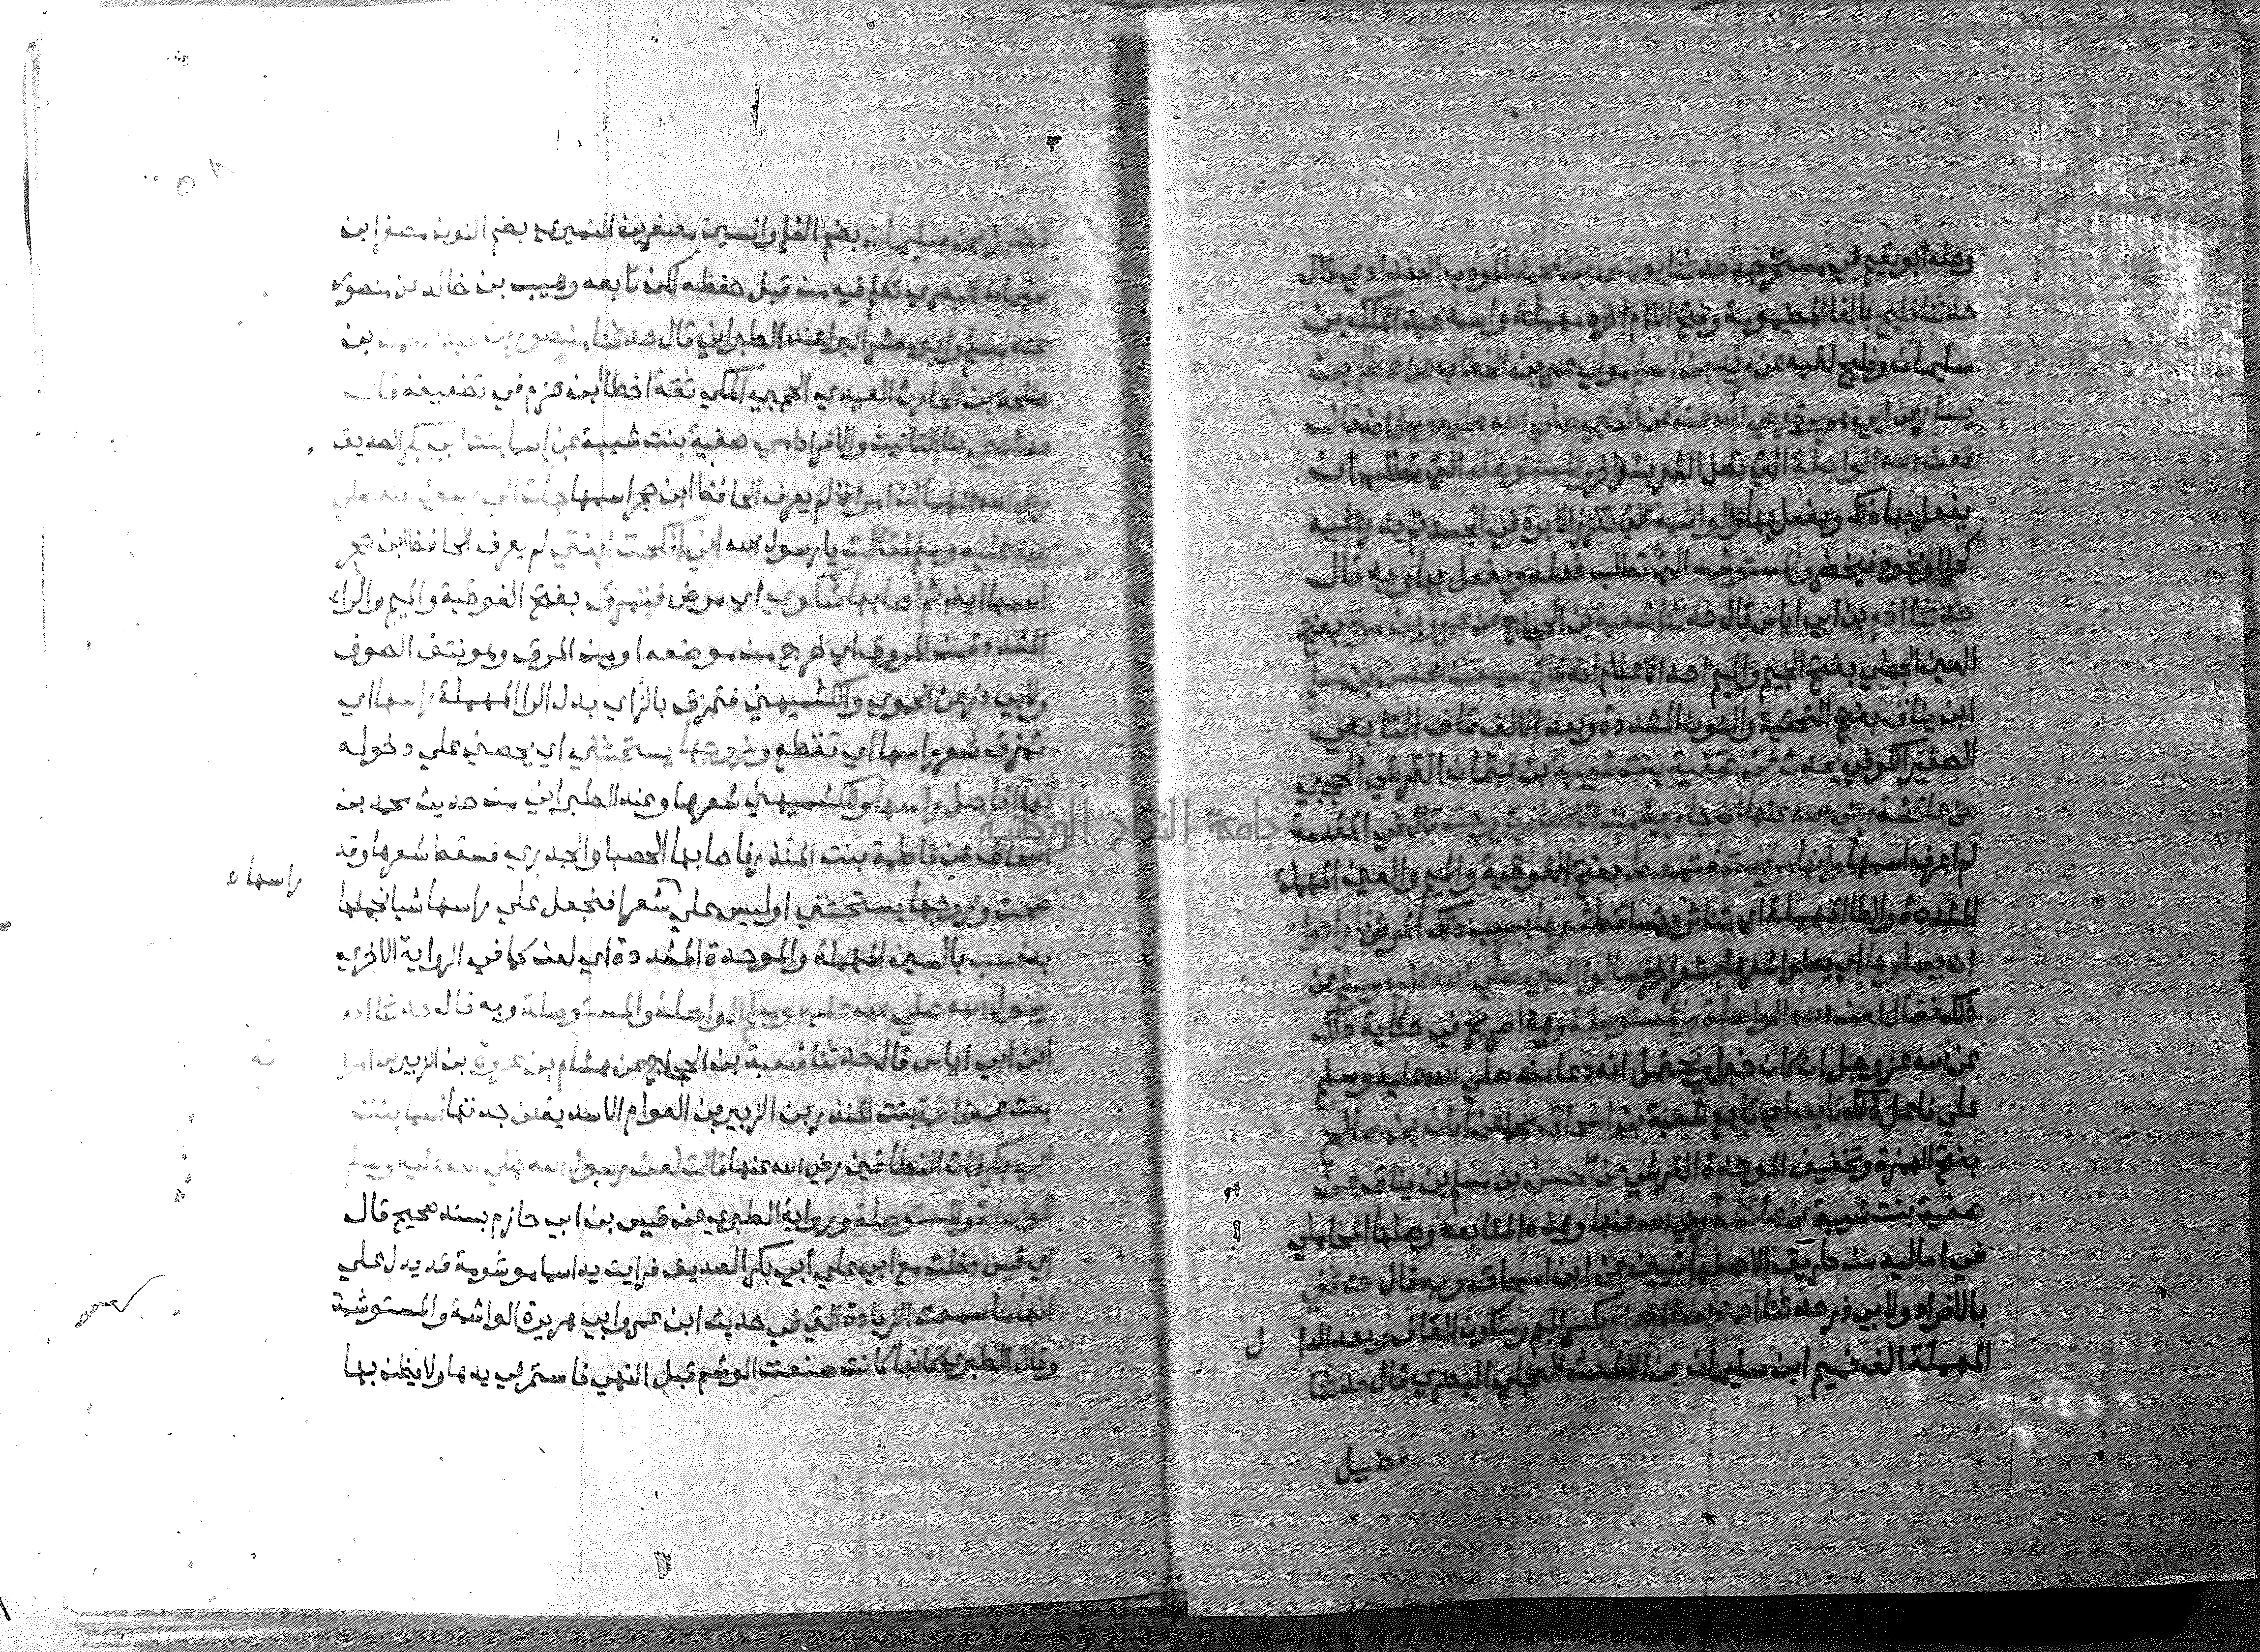 وصله ابو نعيم في مستخرجه حدثنا يونس بن محمد المودب البغدادي قال
حدثنا فليح بالفا المضمومة وفتح اللام اخره مهملة واسمه عبد الملك بن
سليمان وفليح لقبه عن زيد بن اسلم مولي عمر بن الخطاب عن عطا بن
يسار عن ابي هريرة رضي الله عنه عن النبي صلي الله عليه وسلم انه قال
لعن الله الواصلة التي تصل الشعر بشعر اخر والمستوصله التي تطلب ان
يفعل بها ذلك ويفعل بها والواشمة التي تغرز الابرة في الجسد ثم يدر عليه
كحل او نحوه فيخضر والمستوشمه التي تطلب فعله ويفعل بها وبه قال
حدثنا ادم بن ابي اياس قال حدثنا شعبة بن الحجاج عن عمرو بن مرة بفتح
العين الجملي بفتح الجيم والميم احد الاعلام انه قال سمعت الحسن بن مسلم
ابن يناق بفتح التحتية والنون المشددة وبعد الالف قاف التابعي
الصغير الكوفي يحدث عن صفية بنت شيبة بن عثمان القرشي الحجبي
عن عائشة رضي الله عنها ان جارية من الانصار تزوجت قال في المقدمة
لم اعرف اسمها وانها مرضت فتمعط بفتح الفوقية والميم والعين المهملة
المشددة والطا المهملة اي تناثر وتساقط شعرها بسبب ذلك المرض فارادوا
ان يصلوها اي يصلوا شعرها بشعر اخر فسالوا النبي صلي الله عليه وسلم عن
ذلك فقال لعن الله الواصلة والمستوصلة وهذا صريح في حكاية ذلك
عن الله عز وجل ان كان خبرا ويحتمل انه دعا منه صلي الله عليه وسلم
علي فاعل ذلك تابعه اي تابع شعبة بن اسحاق محمد عن ابان بن صالح
بفتح الهمزة وتخفيف الموحدة القرشي عن الحسن بن مسلم بن يناق عن
صفية بنت شيبة عن عائشة رضي الله عنها وهذه المتابعه وصلها المحاملي
في اماليه من طريق الاصبهانيين عن ابن اسحاق وبه قال حدثني
بالافراد ولابي ذر حدثنا احمد بن المقدام بكسر الميم وسكون القاف وبعد الدا ل
المهملة الف فميم ابن سليمان بن الاشعث العجلي البصري قال حدثنا
فضيل
فضيل بن سليمان بضم الفا والسين مصغرين النميري بضم النون مصغرا بن
سليمان البصري تكلم فيه من قبل حفظه لكن تابعه وهيب بن خالد عن منصور
عند مسلم وابو معشر البرا عند الطبراني قال حدثنا منصور بن عبد الرحمن بن
طلحة بن الحارث العبدي الحجبي المكي ثقة اخطا ابن حزم في تضعيفه قال
حدثتني بتا التانيث والافراد امي صفية بنت شيبة عن اسما بنت ابي بكر الصديق
رضي الله عنهما ان امراة لم يعرف الحافظ ابن حجر اسمها جات الي رسول الله صلي
الله عليه وسلم فقالت يا رسول الله اني انكحت ابنتي لم يعرف الحافظ ابن حجر
اسمها ايضا ثم اصابها شكوي اي مرض فتمرق بفتح الفوقية والميم والرا
المشددة من المروق اي خرج من موضعه او من المرق وهو نتف الصوف
ولابي ذر عن الحموي والكشميهني فتمزق بالزاي بدل الرا المهملة راسها اي
تمزق شعر راسها اي تقطع وزوجها يستحثني اي يحضني علي دخوله
بها افاصل راسها وللكشميهني شعرها وعند الطبراني من حديث محمد بن
اسحاق عن فاطمة بنت المنذر فاصابها الحصبا والجدري فسقط شعرها وقد
راسها
صحت وزوجها يستحثني اوليس علي شعر افنجعل علي راسها شيا نجملها
به فسب بالسين المهملة والموحدة المشددة اي لعن كما في الرواية الاخري
رسول الله صلي الله عليه وسلم الواصلة والمستوصلة وبه قال حدثنا ادم
ابن ابي اياس قال حدثنا شعبة بن الحجاج عن هشام بن عروة بن الزبير عن امرا
ته
بنت عمه فاطمة بنت المنذر بن الزبير بن العوام الاسدية عن جدتها اسما بنت
ابي بكر ذات النطاقين رضي الله عنها قالت لعن رسول الله صلي الله عليه وسلم
الواصلة والمستوصلة ورواية الطبري عن قيس بن ابي حازم بسند صحيح قال
اي قيس دخلت مع ابي علي ابي بكر الصديق فرايت يد اسما موشومة قد يدل علي
انها ما سمعت الزيادة التي في حديث ابن عمر وابي هريرة الواشمة والمستوشمة
وقال الطبري كانها كانت صنعت الوشم قبل النهي فاستمر في يدها ولا يظن بها
جامعة النجاح الوطنية